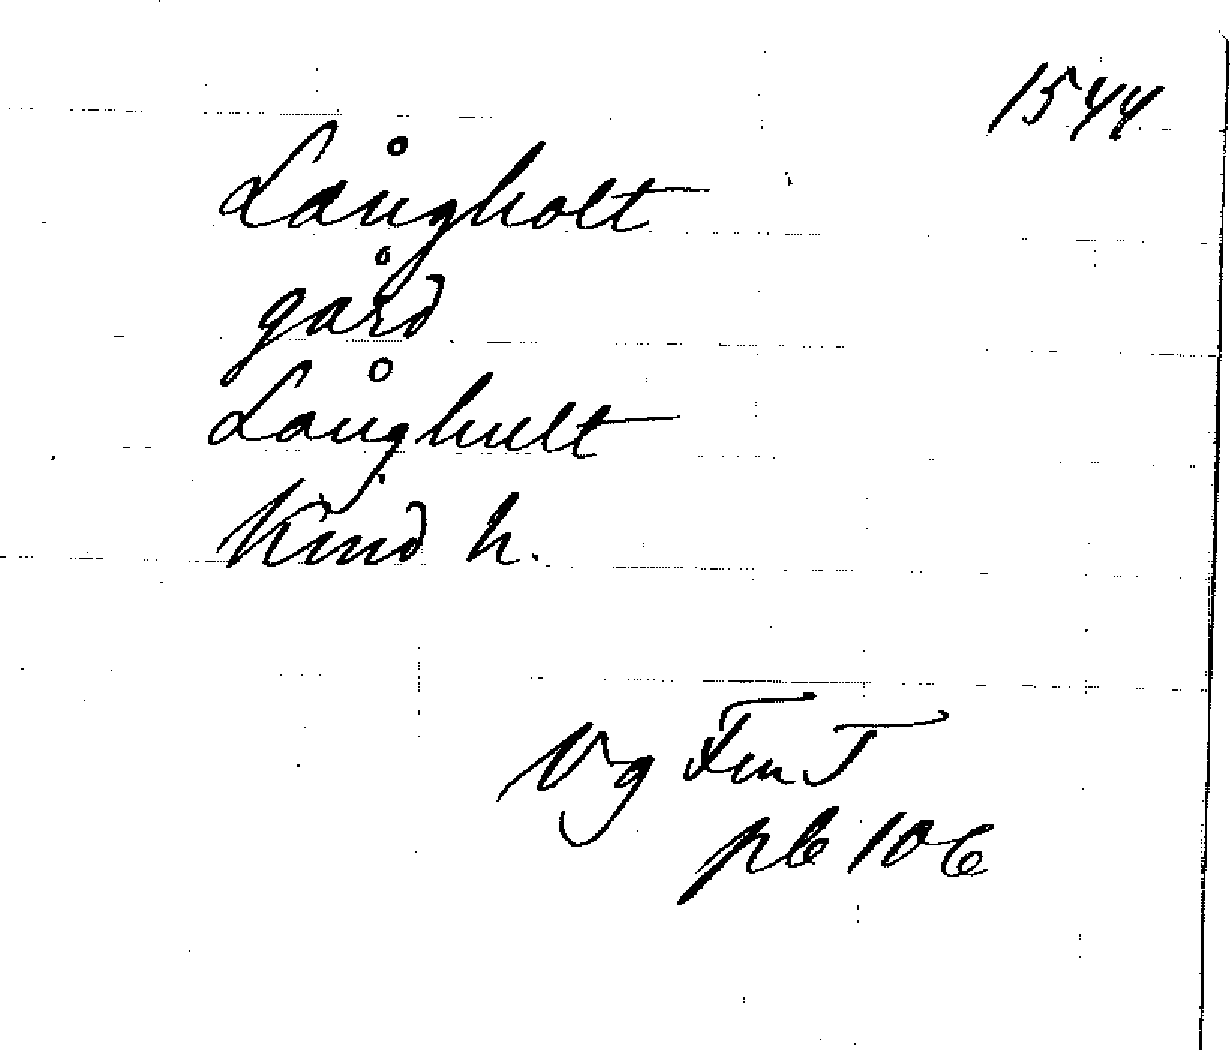 1544
Långholt
gård
Långhult
Kind h.
Vg Fm T
106